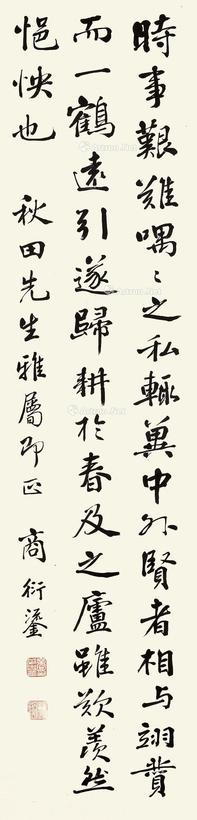 時事艱難喁〻之私輒冀中外賢者相与翊贊
而一鶴遠引遂歸耕於春及之廬雖欽羨然
悒怏也
秋田先生雅屬即正
商衍鎏